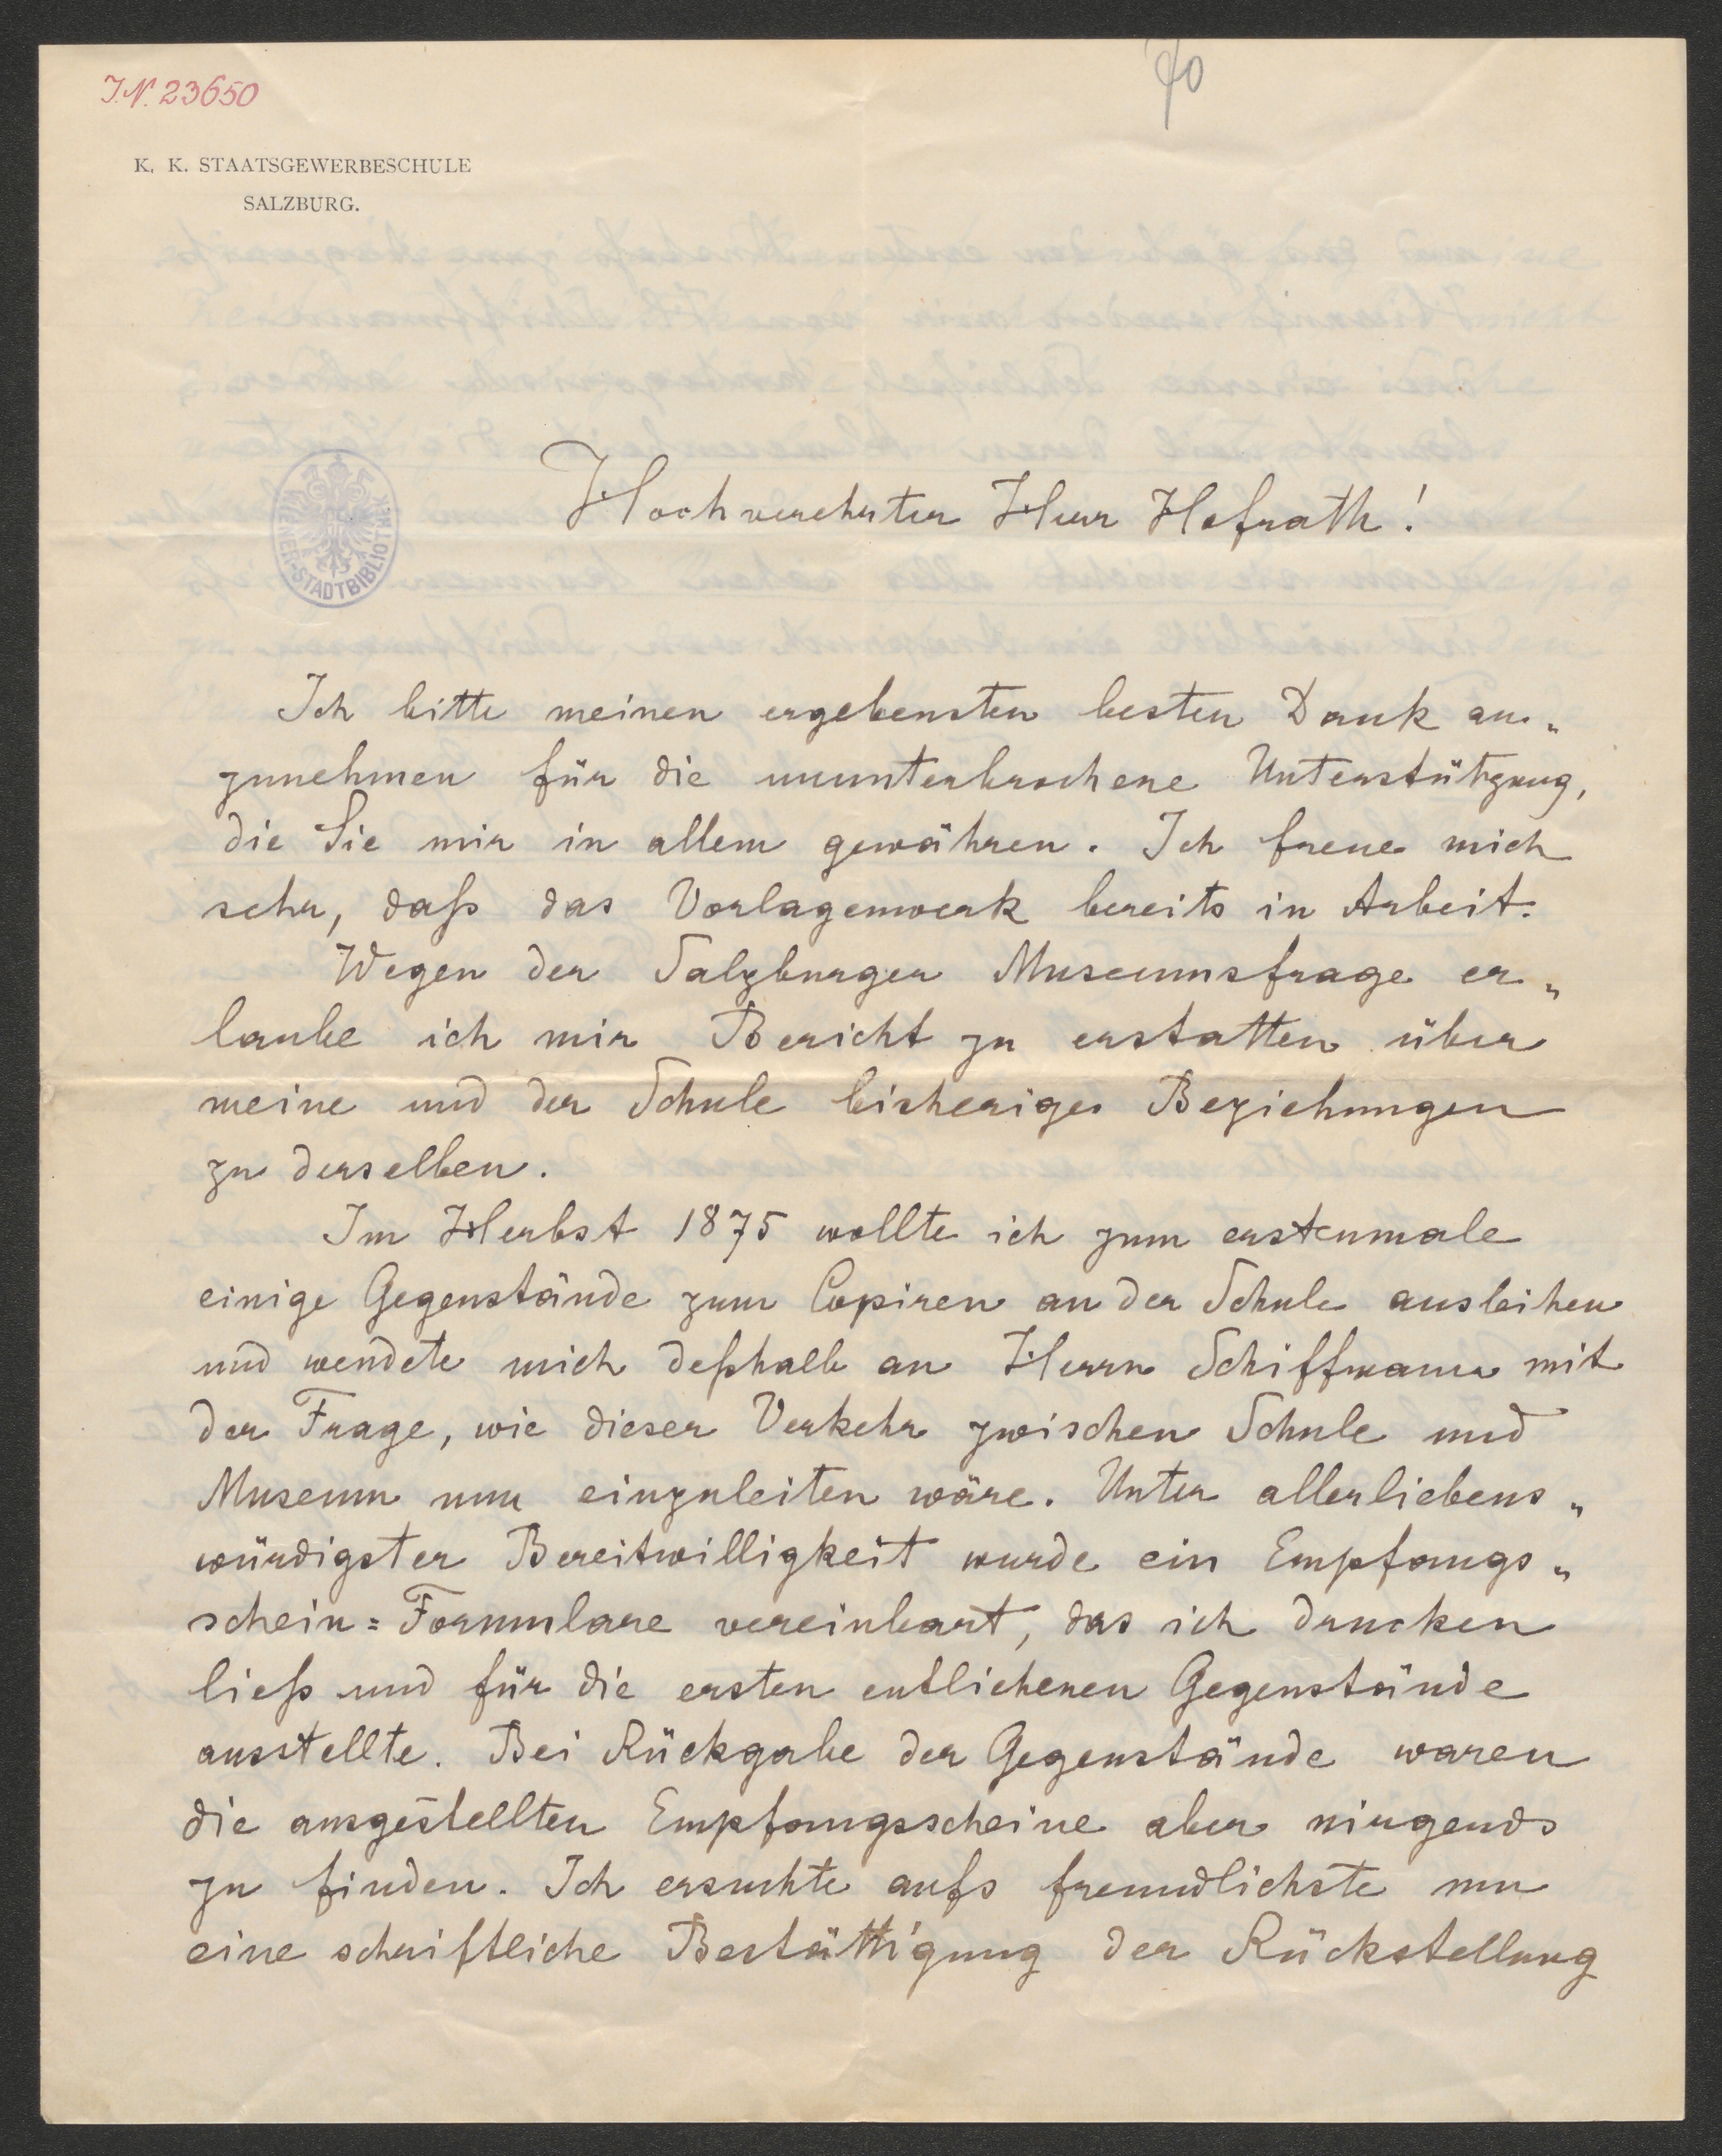 J.N. 23650
40
K. K. STAATSGEWERBESCHULE
SALZBURG.
WIENER-STADTBIBLIOTHEK
Hochverehrter Herr Hofrath!
Ich bitte meinen ergebensten besten Dank an„
zunehmen für die ununterbrochene Unterstützung,
die Sie mir in allem gewähren. Ich freue mich
sehr, daß das Vorlagenwerk bereits in Arbeit.
Wegen der Salzburger Museumsfrage er„
laube ich mir Bericht zu erstatten über
meine und der Schule bisherige Beziehungen
zu derselben.
Im Herbst 1875 wollte ich zum erstenmale
einige Gegenstände zum Copiren an der Schule ausleihen
und wendete mich deßhalb an Herrn Schiffmann mit
der Frage, wie dieser Verkehr zwischen Schule und
Museum nun einzuleiten wäre. Unter allerliebens„
würdigster Bereitwilligkeit wurde ein Empfangs„
schein=Formulare vereinbart, das ich drucken
ließ und für die ersten entliehenen Gegenstände
ausstellte. Bei Rückgabe der Gegenstände waren
die ausgestellten Empfangsscheine aber nirgends
zu finden. Ich ersuchte aufs freundlichste um
eine schriftliche Bestättigung der Rückstellung